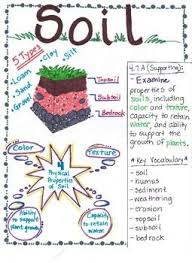 Soil
5 Types
• Clay
• Silt
• Loam
• Sand
• Gravel
Topsoil
Subsoil
Bedrock
4.7A (Supporting):
- Examine
properties of
soils, including
color and texture,
capacity to retain
water, and ability
to support the
growth of plants.
* Key Vocabulary *
- soil
- humus
- sediment
- weathering
- erosion
- topsoil
- subsoil
- bedrock
Color
Texture
4
Physical
Properties
of Soil
Ability to
support
plant growth
Capacity to
retain
water